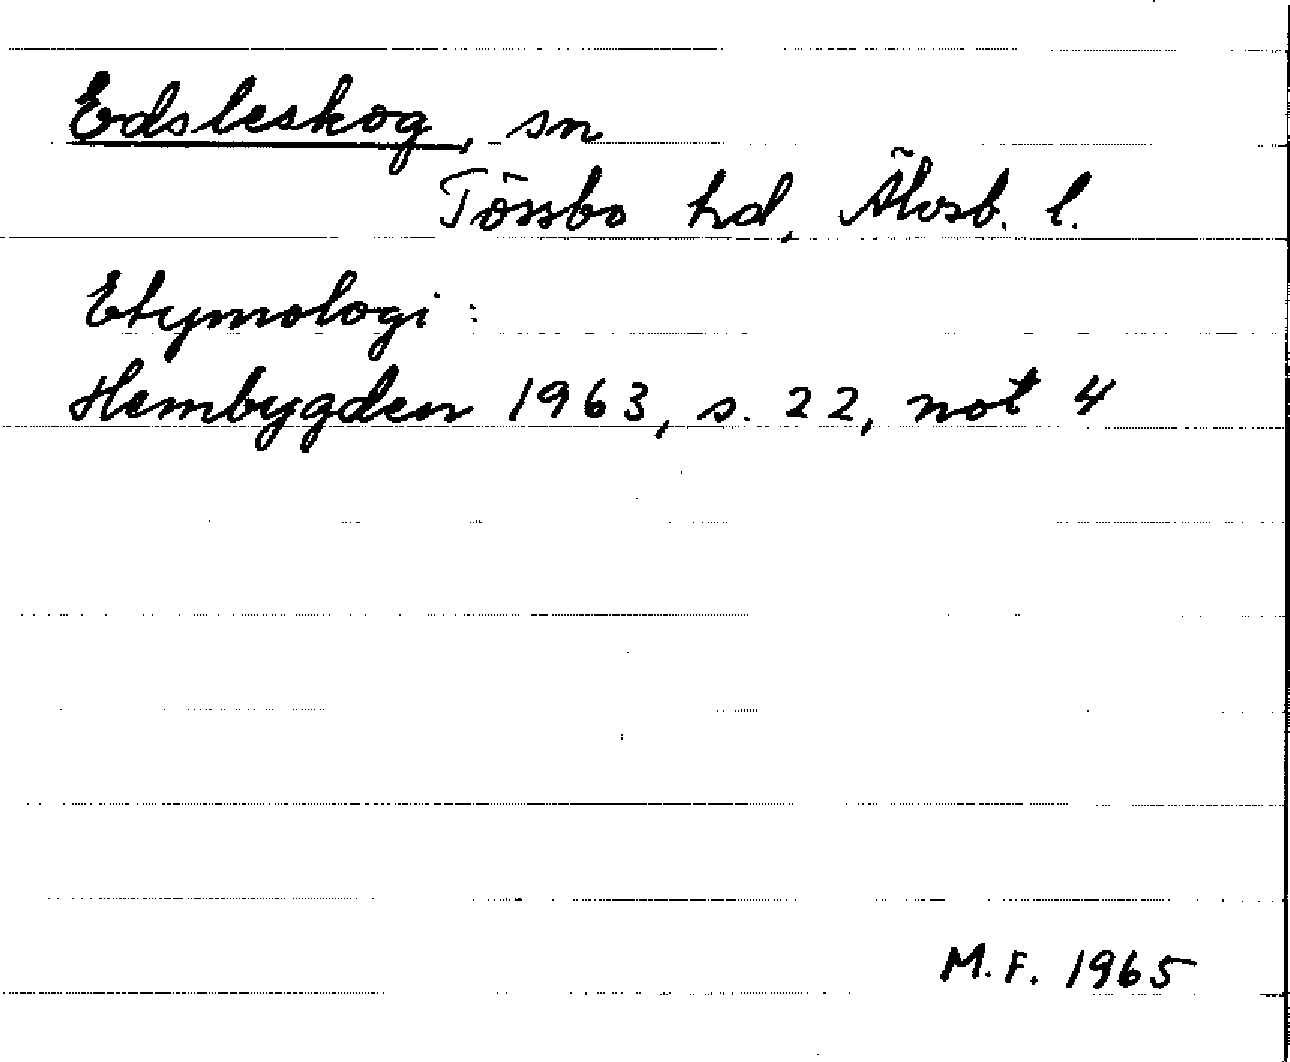 Edsleskog, sn
Tössbo hd, Älvsb. l.
Etymologi:
Hembygden 1963, s. 22, not 4
M.F. 1965